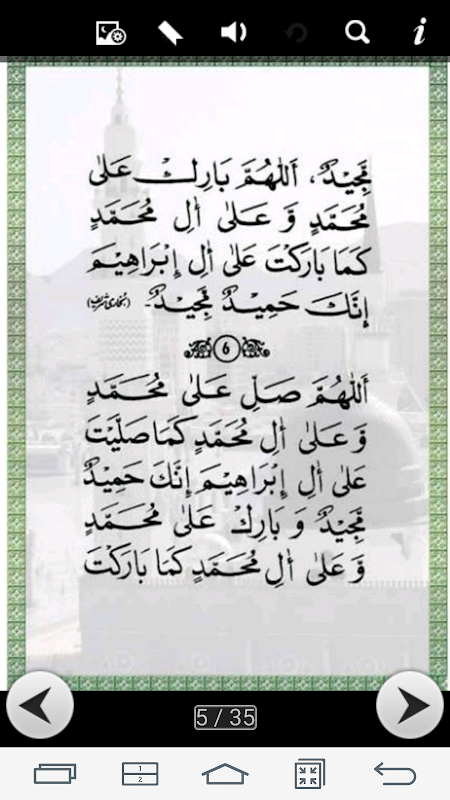 مَّجِيْدٌ، اَللّٰهُمَّ بَارِكْ عَلٰى
مُحَمَّدٍ وَّ عَلٰى اٰلِ مُحَمَّدٍ
كَمَا بَارَكْتَ عَلٰى اٰلِ اِبْرَاهِيْمَ
اِنَّكَ حَمِيْدٌ مَّجِيْدٌ۔ (بخاری شریف)
6
اَللّٰهُمَّ صَلِّ عَلٰى مُحَمَّدٍ
وَّ عَلٰى اٰلِ مُحَمَّدٍ كَمَا صَلَّيْتَ
عَلٰى اٰلِ اِبْرَاهِيْمَ اِنَّكَ حَمِيْدٌ
مَّجِيْدٌ وَ بَارِكْ عَلٰى مُحَمَّدٍ
وَّ عَلٰى اٰلِ مُحَمَّدٍ كَمَا بَارَكْتَ
5 / 35
1
2